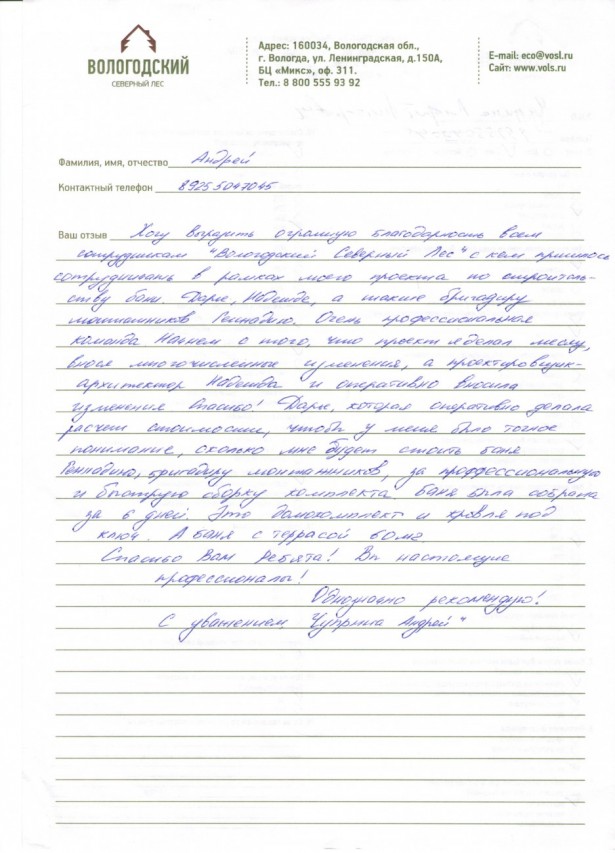 ВОЛОГОДСКИЙ
СЕВЕРНЫЙ ЛЕС
Адрес: 160034, Вологодская обл.,
г. Вологда, ул. Ленинградская, д.150А,
БЦ «Микс», оф. 311.
Тел.: 8 800 555 93 92
E-mail: eco@vosl.ru
Сайт: www.vols.ru
Фамилия, имя, отчество Андрей
Контактный телефон 89255047045
Ваш отзыв Хочу выразить огромную благодарность всем
сотрудникам "Вологодский Северный Лес" с кем пришлось
сотрудничать в рамках моего проекта по строитель-
ству бани. Дарье, Надежде, а также бригадиру
монтажников Геннадию. Очень профессиональная
команда. Начнем с того, что проект я делал месяц,
внося многочисленные изменения, а проектировщик-
архитектор Надежда и оперативно вносила
изменения Спасибо! Дарье, которая оперативно делала
расчет стоимости, чтобы у меня было точное
понимание, сколько мне будет стоить баня
Геннадию, бригадиру монтажников, за профессиональную
и быструю сборку комплекта. Баня была собрана
за 6 дней. Это домокомплект и кровля под
ключ. А баня с террасой 60м2
Спасибо Вам Ребята! Вы настоящие
профессионалы!
Однозначно рекомендую!
С уважением Чуприна Андрей"